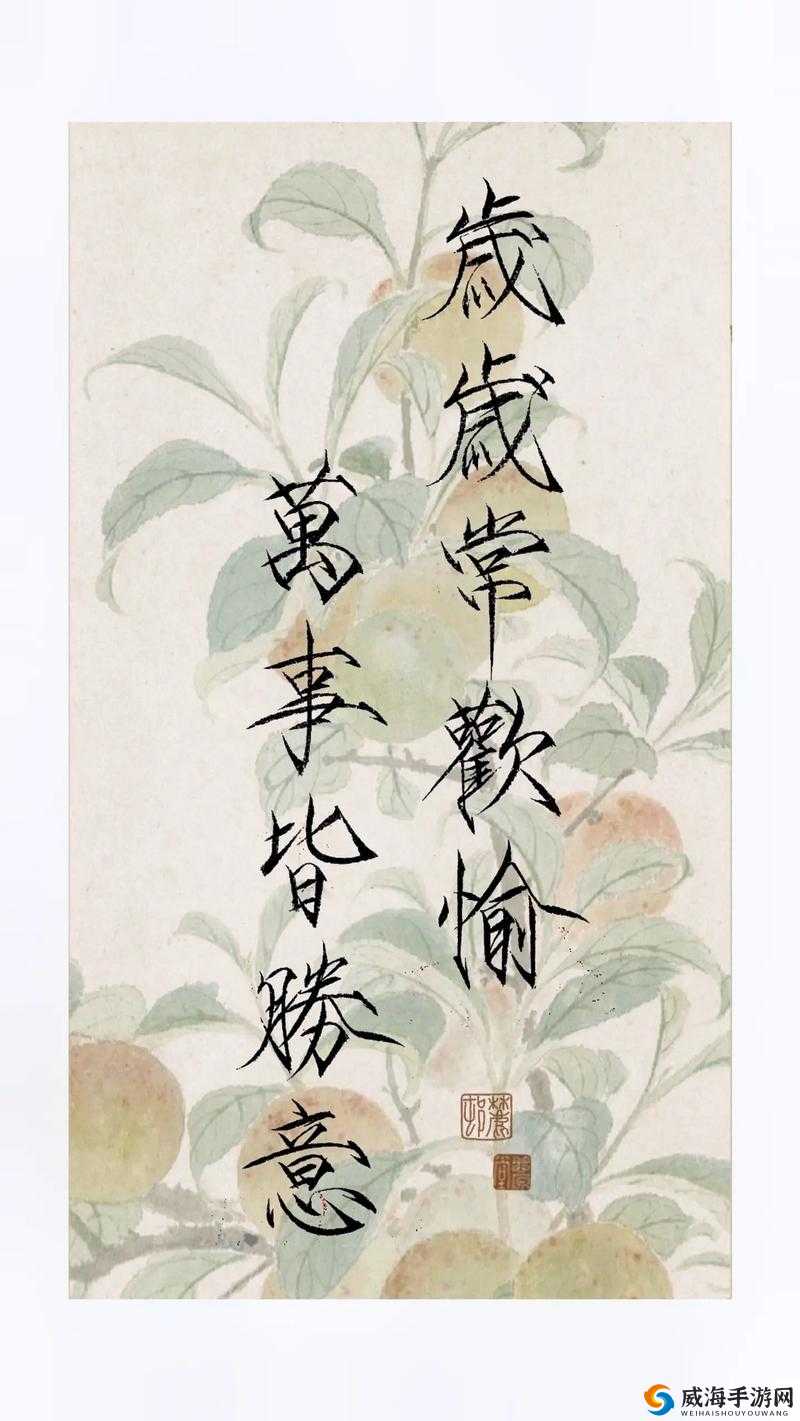 歲歲常歡愉
萬事皆勝意
威海手游网
WEIHAISHOUYOUWANG